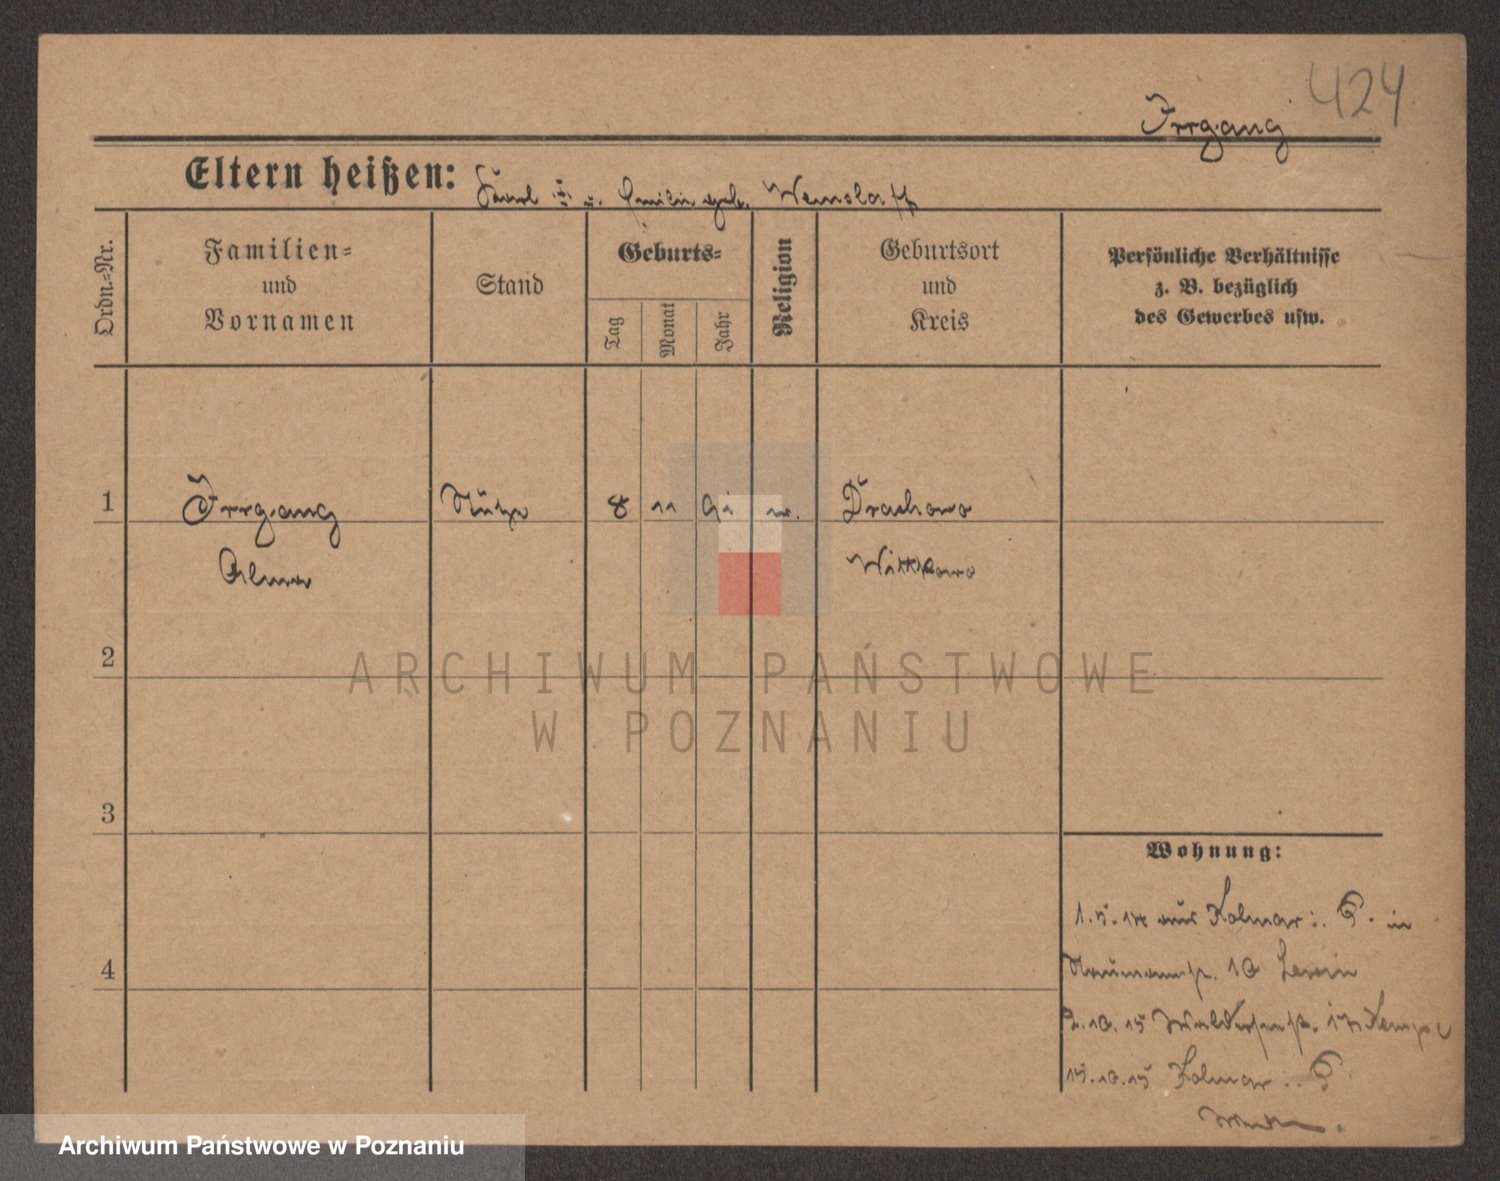 424
Irrgang
Eltern heißen: Karl u. Emilie geb. Wenslaff
Ordn.-Nr.
Familien-
und
Vornamen
Stand
Geburts-
Tag
Monat
Jahr
Religion
Geburtsort
und
Kreis
Persönliche Verhältnisse
z. B. bezüglich
des Gewerbes usw.
1 Irrgang Stütze 8 11 91 Drachowo
Alma Wittkowo
2
ARCHIWUM PAŃSTWOWE
W POZNANIU
3
Wohnung:
1.5.14 aus Kolmar i. P. in
4
Naumannstr. 10
2.10.15 Walderseestr. 17
15.10.15 Kolmar i. P.
Archiwum Państwowe w Poznaniu